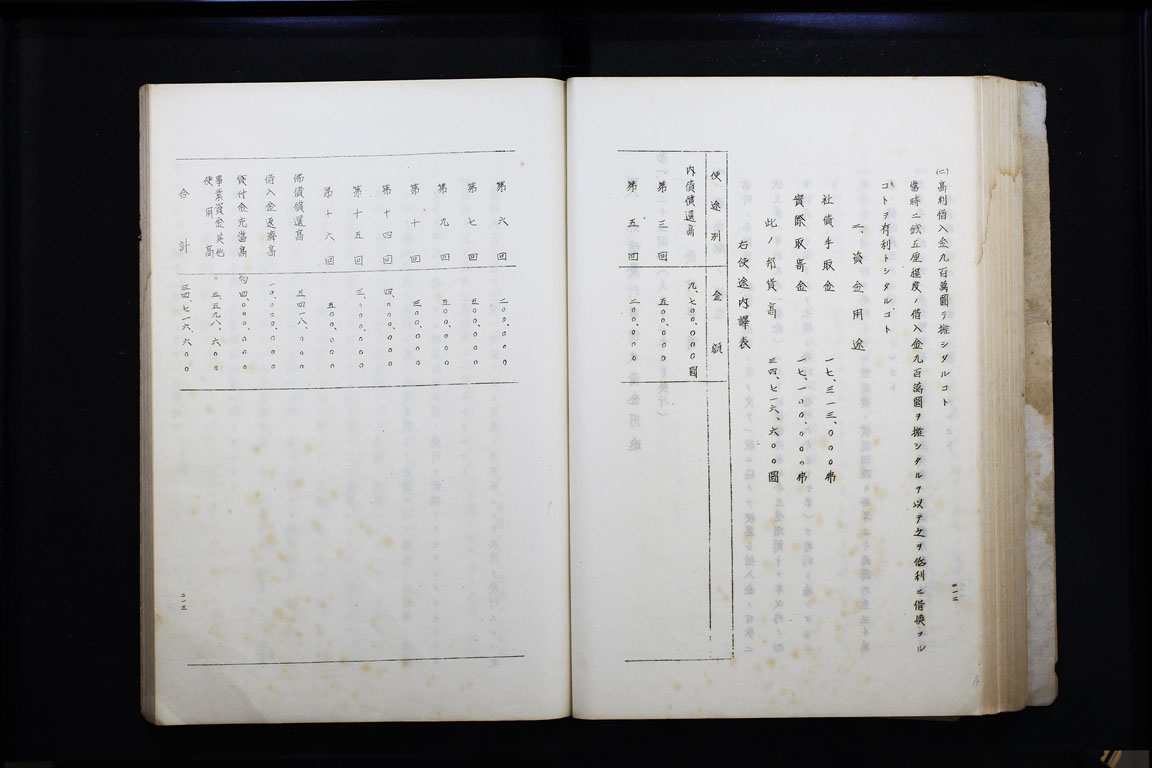 (二)高利借入金九百萬圓ヲ擁シタルコト
當時二戔五厘程度ノ借入金九百萬圓ヲ擁シタルヲ以テ之ヲ低利ニ借換フル
コトヲ有利トシタルコト
二、資金用途
社債手取金 一七、三一三、〇〇〇弗
實際取寄金 一七、一〇〇、〇〇〇弗
此ノ邦貨高 三四、七一六、六〇〇圓
右使途内譯表
使途別 金額
内債償還高 九、七〇〇、〇〇〇圓
第三回 五〇〇、〇〇〇
第五回 二〇〇、〇〇〇
二一二
第六回 二〇〇、〇〇〇
第七回 五〇〇、〇〇〇
第九回 五〇〇、〇〇〇
第十回 三〇〇、〇〇〇
第十四回 四、〇〇〇、〇〇〇
第十五回 三、〇〇〇、〇〇〇
第十六回 五〇〇、〇〇〇
佛債償還高 五、四一八、〇〇〇
借入金返濟高 一〇、〇〇〇、〇〇〇
貸付金充當高 約四、〇〇〇、〇〇〇
事業資金其他使用高 五、五九八、六〇〇
合計 三四、七一六、六〇〇
二一三